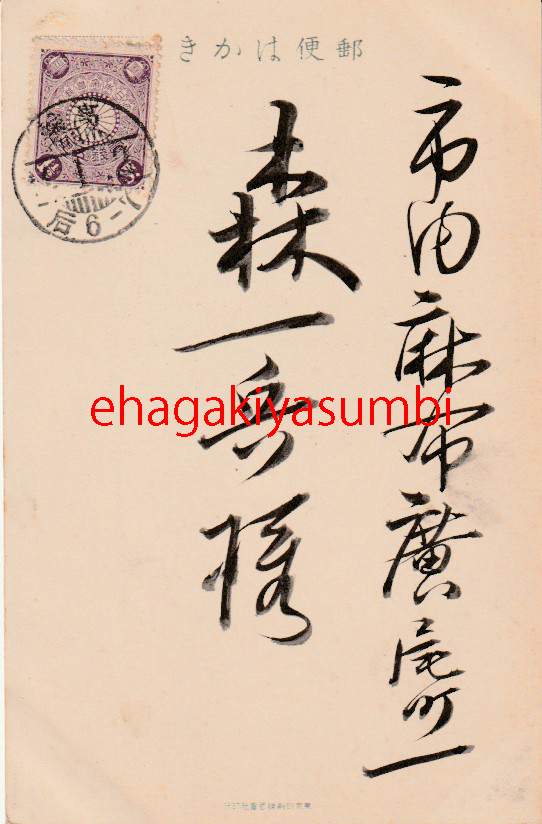 郵便はかき
市内麻布廣尾町一
森一兵様
ehagakiyasumbi
后6-